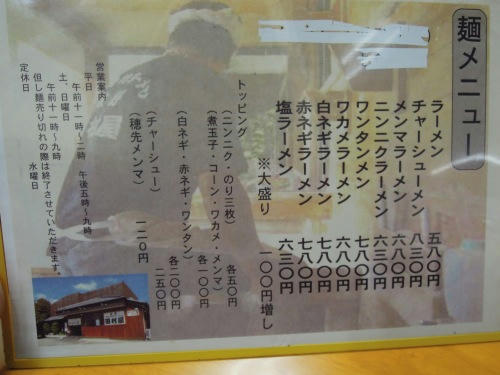 麺メニュー
ラーメン 五八〇円
チャーシューメン 八三〇円
メンマラーメン 六八〇円
ニンニクラーメン 六三〇円
ワンタンメン 七八〇円
ワカメラーメン 六八〇円
白ネギラーメン 七八〇円
赤ネギラーメン 七八〇円
塩ラーメン 六三〇円
※大盛り 一〇〇円増し
トッピング
（ニンニク・のり三枚） 各五〇円
（煮玉子・コーン・ワカメ・メンマ） 各一〇〇円
（白ネギ・赤ネギ・ワンタン） 各二〇〇円
（チャーシュー） 二五〇円
（穂先メンマ） 一二〇円
営業案内
平日
午前十一時〜二時 午後五時〜九時
土・日曜日
午前十一時〜九時
但し麺売り切れの際は終了させていただきます。
定休日 水曜日